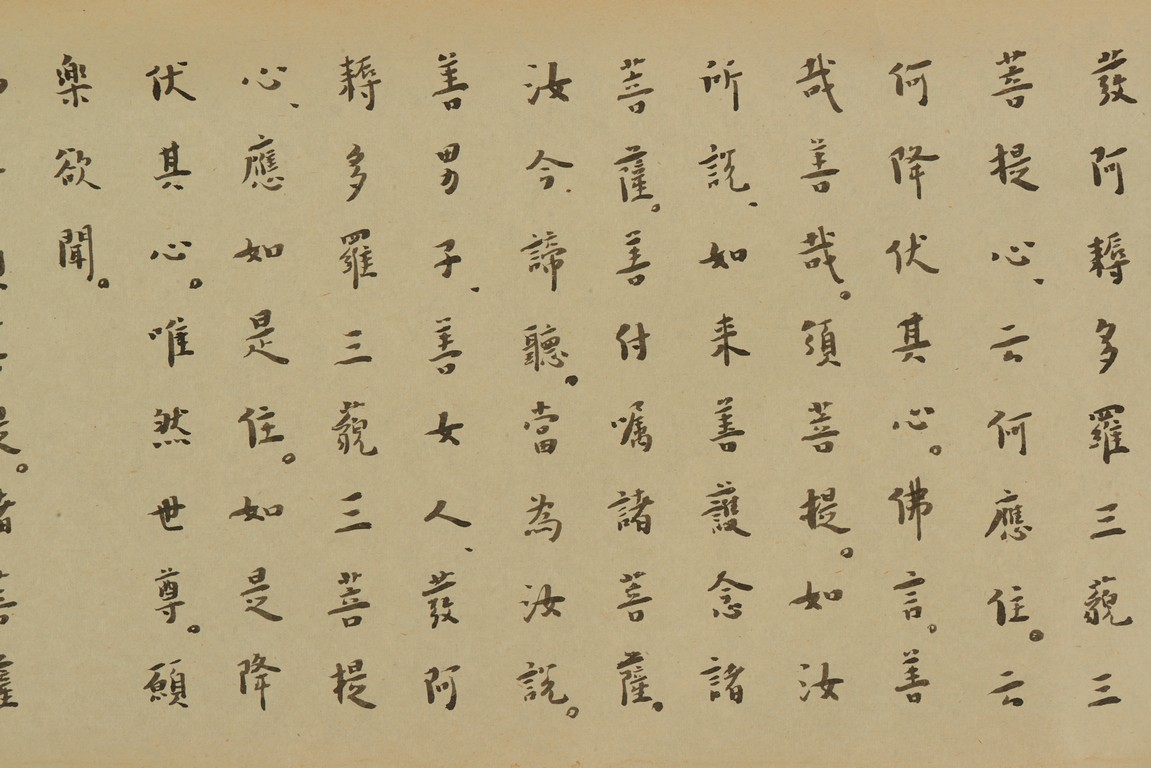 發阿耨多羅三藐三
菩提心、云何應住。云
何降伏其心。佛言。善
哉善哉。須菩提。如汝
所説、如来善護念諸
菩薩。善付嘱諸菩薩。
汝今、諦聽。當為汝説。
善男子、善女人、發阿
耨多羅三藐三菩提
心、應如是住。如是降
伏其心。唯然世尊。願
樂欲聞。